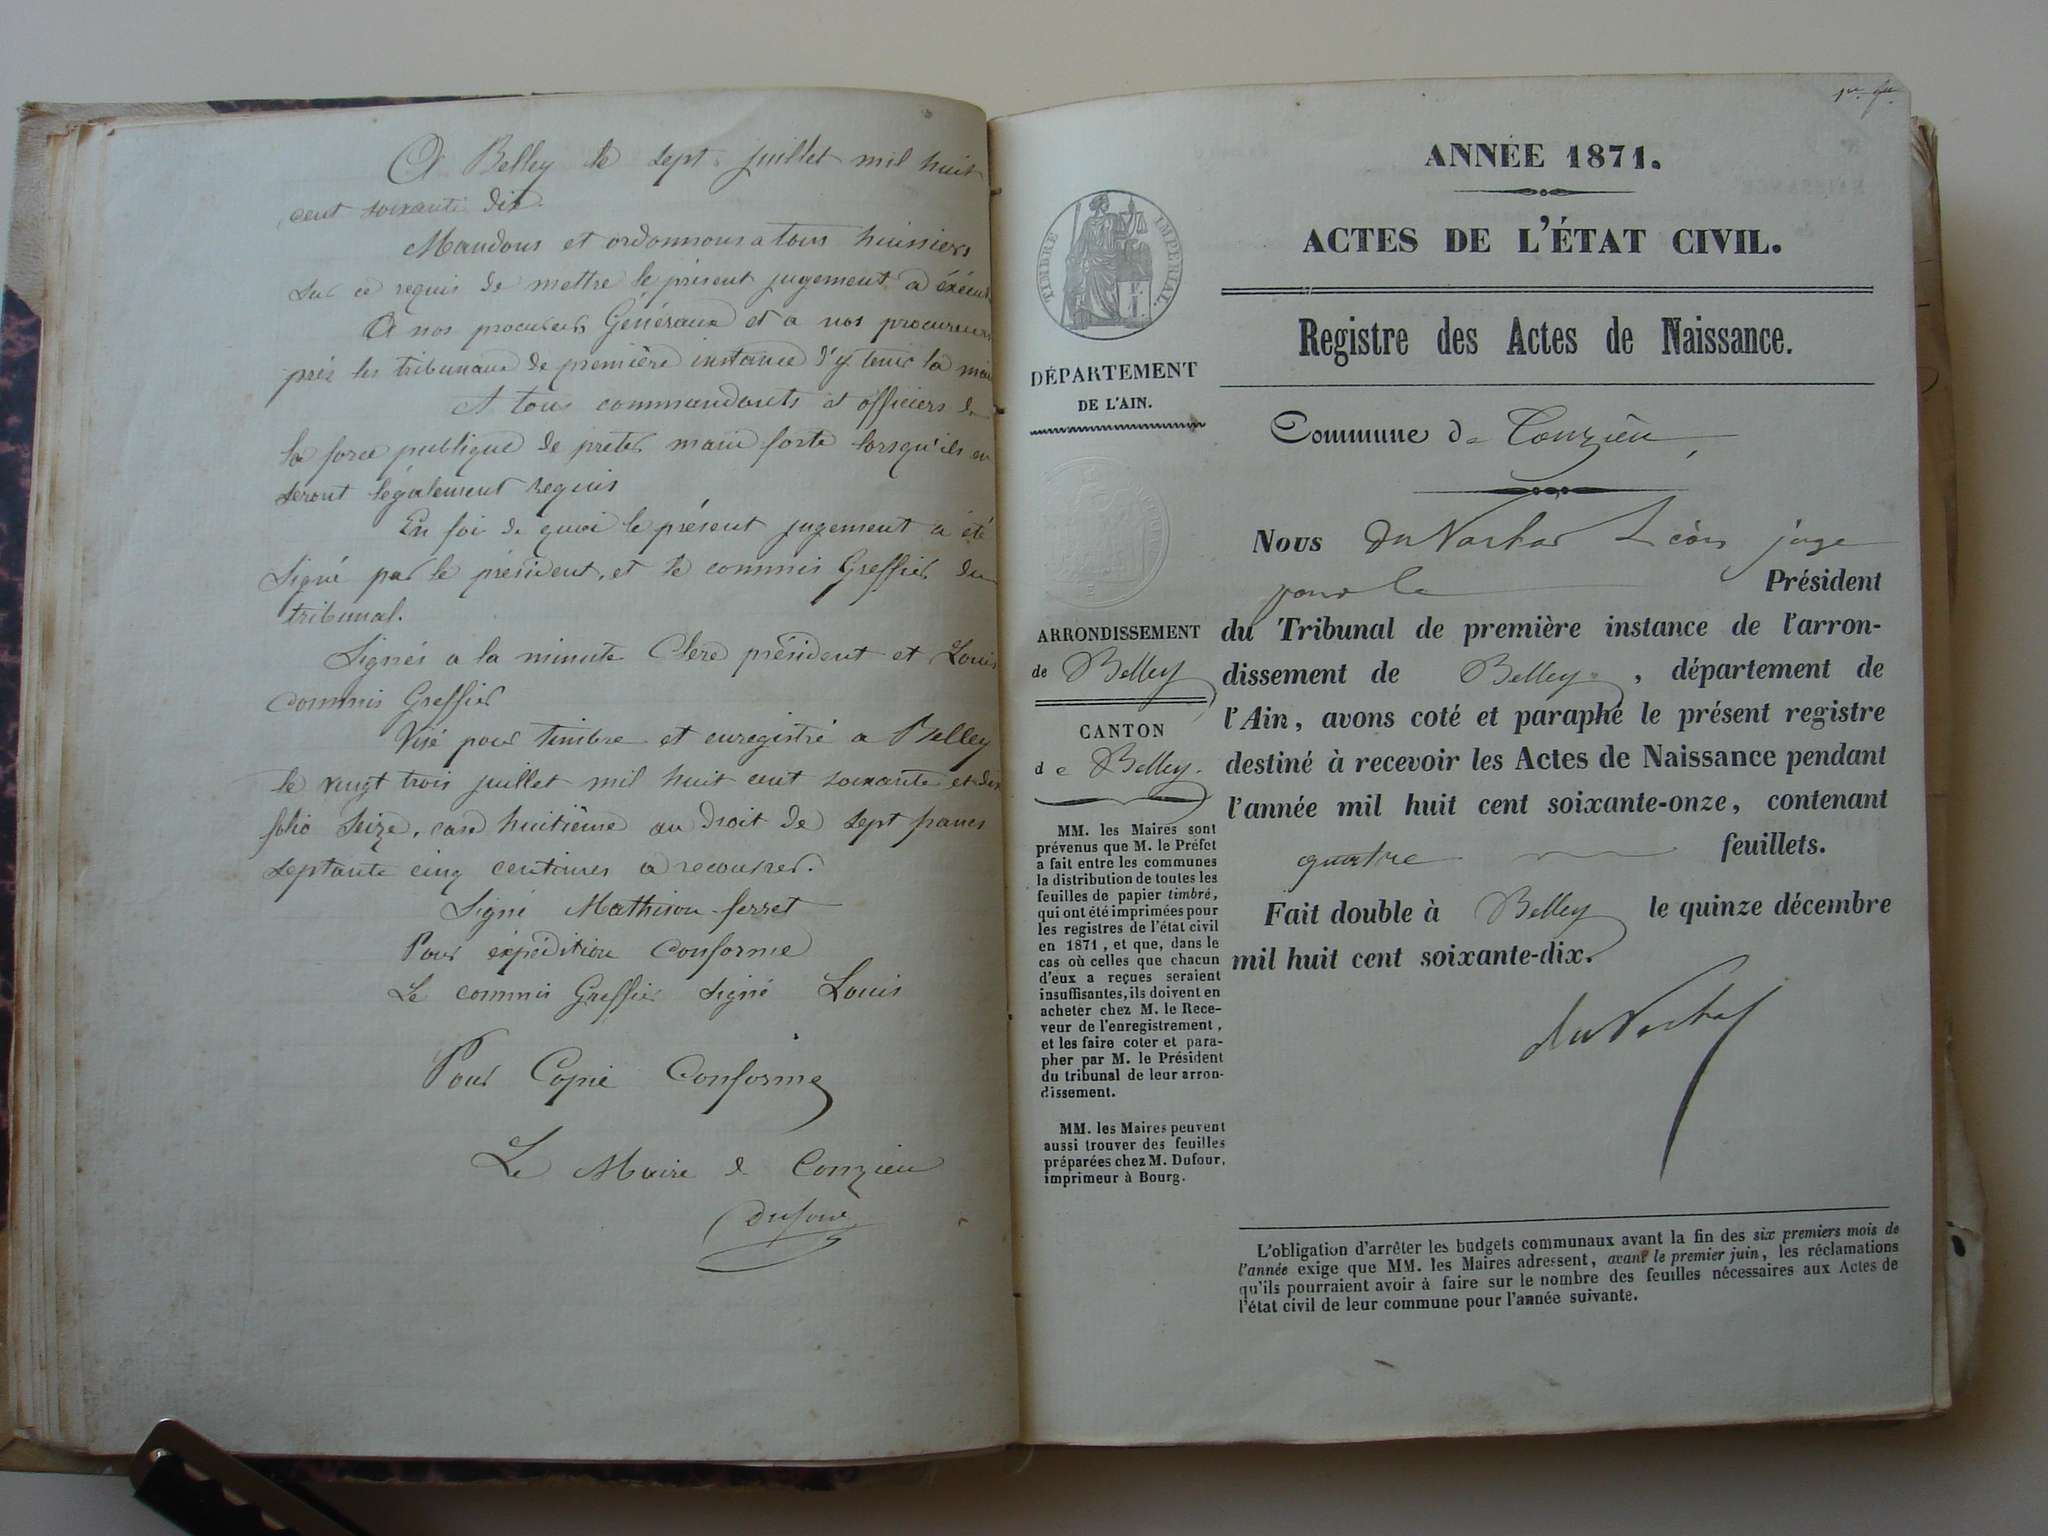 A Belley le sept juillet mil huit
cent soixante dix.
Mandons et ordonnons a tous huissiers
sur ce requis de mettre le présent jugement a éxécut
A nos procureurs Généraux et a nos procureurs
près les tribunaux de première instance d'y tenir la main
A tous commandants et officiers de
la force publique de preter main forte lorsqu'ils en
seront légalement requis
En foi de quoi le présent jugement a été
signé par le président, et le commis Greffier du
tribunal.
Signés a la minute Clerc président et Louis
commis Greffier
Visé pour timbre et enregistré a Belley
le vingt trois juillet mil huit cent soixante et dix
folio seize, case huitième au droit de sept francs
septante cinq centimes a recouvrer.
Signé Mathison ferret
Pour éxpédition Conforme
Le commis Greffier signé Louis
Pour Copie Conforme
Le Maire de Conzieu
Dufour
ANNÉE 1871.
ACTES DE L'ÉTAT CIVIL.
Registre des Actes de Naissance.
TIMBRE IMPÉRIAL.
DÉPARTEMENT
DE L'AIN.
ARRONDISSEMENT
de Belley
CANTON
de Belley.
MM. les Maires sont
prévenus que M. le Préfet
a fait entre les communes
la distribution de toutes les
feuilles de papier timbré,
qui ont été imprimées pour
les registres de l'état civil
en 1871, et que, dans le
cas où celles que chacun
d'eux a reçues seraient
insuffisantes, ils doivent en
acheter chez M. le Rece-
veur de l'enregistrement,
et les faire coter et para-
pher par M. le Président
du tribunal de leur arron-
dissement.
MM. les Maires peuvent
aussi trouver des feuilles
préparées chez M. Dufour,
imprimeur à Bourg.
Commune de Conzieu
Nous du Vachat Léon juge
pour le Président
du Tribunal de première instance de l'arron-
dissement de Belley, département de
l'Ain, avons coté et paraphé le présent registre
destiné à recevoir les Actes de Naissance pendant
l'année mil huit cent soixante-onze, contenant
quatre feuillets.
Fait double à Belley le quinze décembre
mil huit cent soixante-dix.
du Vachat
L'obligation d'arrêter les budgets communaux avant la fin des six premiers mois de
l'année exige que MM. les Maires adressent, avant le premier juin, les réclamations
qu'ils pourraient avoir à faire sur le nombre des feuilles nécessaires aux Actes de
l'état civil de leur commune pour l'année suivante.